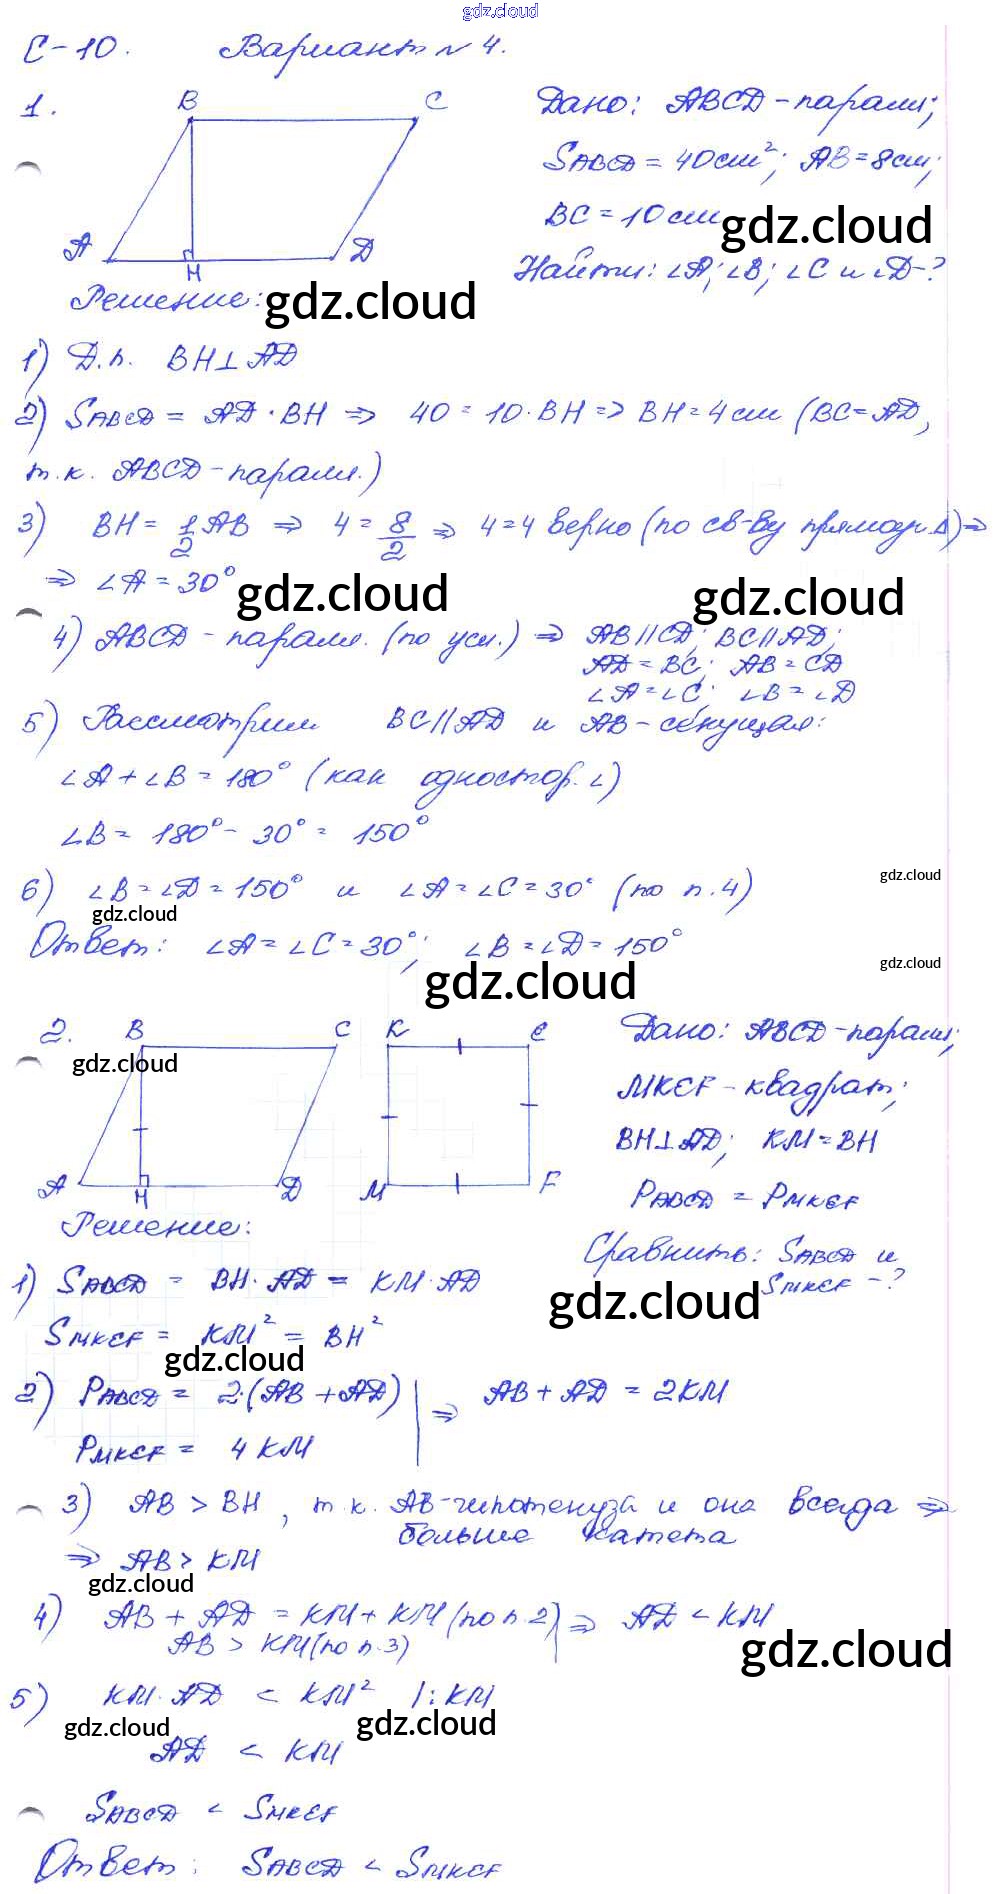 gdz.cloud
С-10. Вариант № 4.
1.
B C
A H D
Дано: ABCD - паралл;
SABCD = 40 см²; AB = 8 см;
BC = 10 см
gdz.cloud
Найти: ∠A; ∠B; ∠C и ∠D - ?
Решение:
gdz.cloud
1) Д.п. BH⊥AD
2) SABCD = AD · BH ⇒ 40 = 10 · BH ⇒ BH = 4 см (BC = AD,
т.к. ABCD - паралл.)
3) BH = 1/2 AB ⇒ 4 = 8/2 ⇒ 4 = 4 верно (по св-ву прямоуг. Δ) ⇒
⇒ ∠A = 30°
gdz.cloud
gdz.cloud
4) ABCD - паралл. (по усл.) ⇒ AB || CD; BC || AD;
AD = BC; AB = CD
∠A = ∠C; ∠B = ∠D
5) Рассмотрим BC || AD и AB - секущая:
∠A + ∠B = 180° (как одностор. ∠)
∠B = 180° - 30° = 150°
6) ∠B = ∠D = 150° и ∠A = ∠C = 30° (по п. 4)
gdz.cloud
gdz.cloud
Ответ: ∠A = ∠C = 30°; ∠B = ∠D = 150°
gdz.cloud
gdz.cloud
2.
B C
A H D
K E
M F
gdz.cloud
Дано: ABCD - паралл;
MKEF - квадрат;
BH⊥AD; KM = BH
PABCD = PMKEF
Сравнить: SABCD и
SMKEF - ?
Решение:
1) SABCD = BH · AD = KM · AD
gdz.cloud
SMKEF = KM² = BH²
gdz.cloud
2) PABCD = 2·(AB + AD) | ⇒ AB + AD = 2KM
PMKEF = 4 KM
3) AB > BH, т.к. AB - гипотенуза и она всегда ⇒
больше катета
⇒ AB > KM
gdz.cloud
4) AB + AD = KM + KM (по п. 2) | ⇒ AD < KM
AB > KM (по п. 3)
gdz.cloud
5) KM · AD < KM² | : KM
gdz.cloud
gdz.cloud
AD < KM
SABCD < SMKEF
Ответ: SABCD < SMKEF